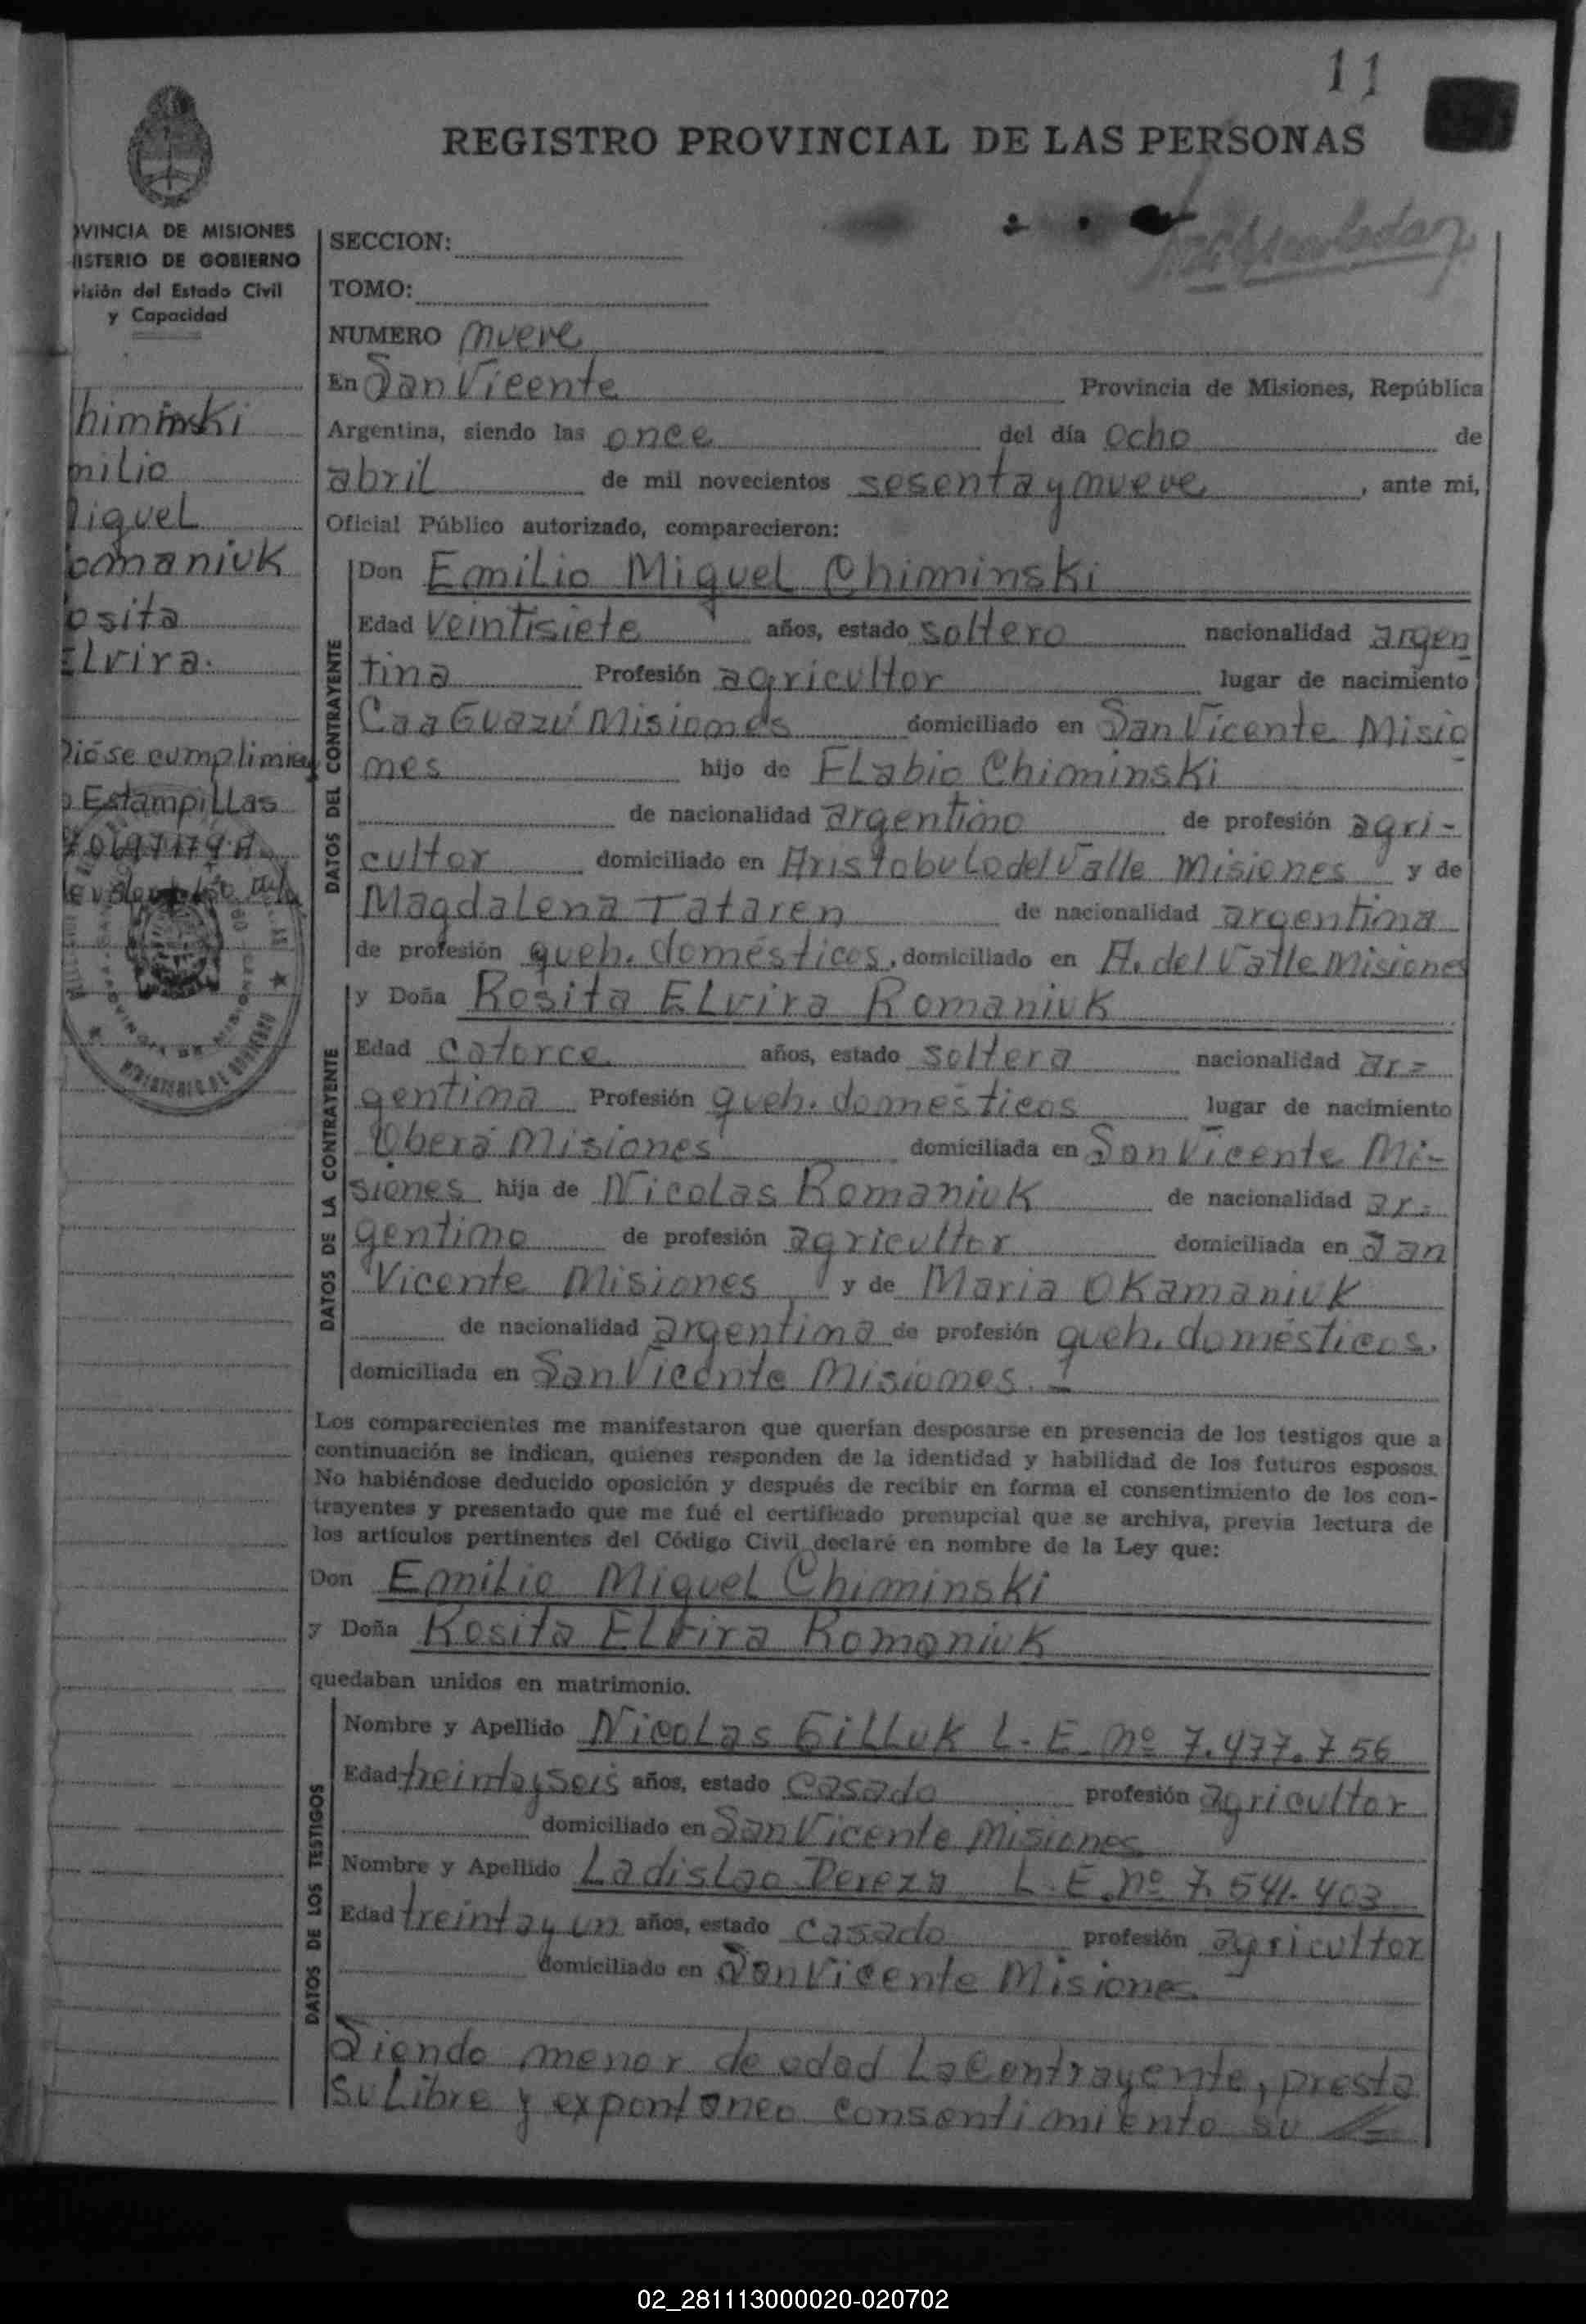 11
REGISTRO PROVINCIAL DE LAS PERSONAS
VINCIA DE MISIONES
ISTERIO DE GOBIERNO
visión del Estado Civil
y Capacidad
himinski
milio
iguel
omaniuk
osita
Elvira.
Dióse cumplimien
o Estampillas
MINISTERIO DE GOBIERNO
SECCION:
TOMO:
NUMERO nueve
En San Vicente Provincia de Misiones, República
Argentina, siendo las once del día ocho de
abril de mil novecientos sesenta y nueve, ante mi,
Oficial Público autorizado, comparecieron:
DATOS DEL CONTRAYENTE
Don Emilio Miguel Chiminski
Edad veintisiete años, estado soltero nacionalidad argen
tina Profesión agricultor lugar de nacimiento
Caa Guazú Misiones domiciliado en San Vicente Misio
nes hijo de Flabio Chiminski
de nacionalidad argentino de profesión agri-
cultor domiciliado en Aristobulo del Valle Misiones y de
Magdalena Tataren de nacionalidad argentina
de profesión queh. domésticos, domiciliado en A. del Valle Misiones
DATOS DE LA CONTRAYENTE
y Doña Rosita Elvira Romaniuk
Edad catorce años, estado soltera nacionalidad ar=
gentina Profesión queh. domésticos lugar de nacimiento
Oberá Misiones domiciliada en San Vicente Mi-
siones hija de Nicolas Romaniuk de nacionalidad ar=
gentino de profesión agricultor domiciliada en San
Vicente Misiones y de Maria Okamaniuk
de nacionalidad argentina de profesión queh. domésticos.
domiciliada en San Vicente Misiones.-
Los comparecientes me manifestaron que querían desposarse en presencia de los testigos que a
continuación se indican, quienes responden de la identidad y habilidad de los futuros esposos.
No habiéndose deducido oposición y después de recibir en forma el consentimiento de los con-
trayentes y presentado que me fué el certificado prenupcial que se archiva, previa lectura de
los artículos pertinentes del Código Civil declaré en nombre de la Ley que:
Don Emilio Miguel Chiminski
y Doña Rosita Elvira Romaniuk
quedaban unidos en matrimonio.
DATOS DE LOS TESTIGOS
Nombre y Apellido Nicolas Gilluk L. E. nº 7.477.756
Edad treinta y seis años, estado casado profesión agricultor
domiciliado en San Vicente Misiones
Nombre y Apellido Ladislao Pereza L. E. nº 7.541.403
Edad treinta y un años, estado casado profesión agricultor
domiciliado en San Vicente Misiones
Siendo menor de edad La Contrayente, presta
su Libre y expontaneo consentimiento su
02_281113000020-020702